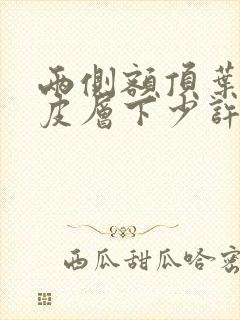 兩側額頂葉
皮層下少許
西瓜甜瓜哈密